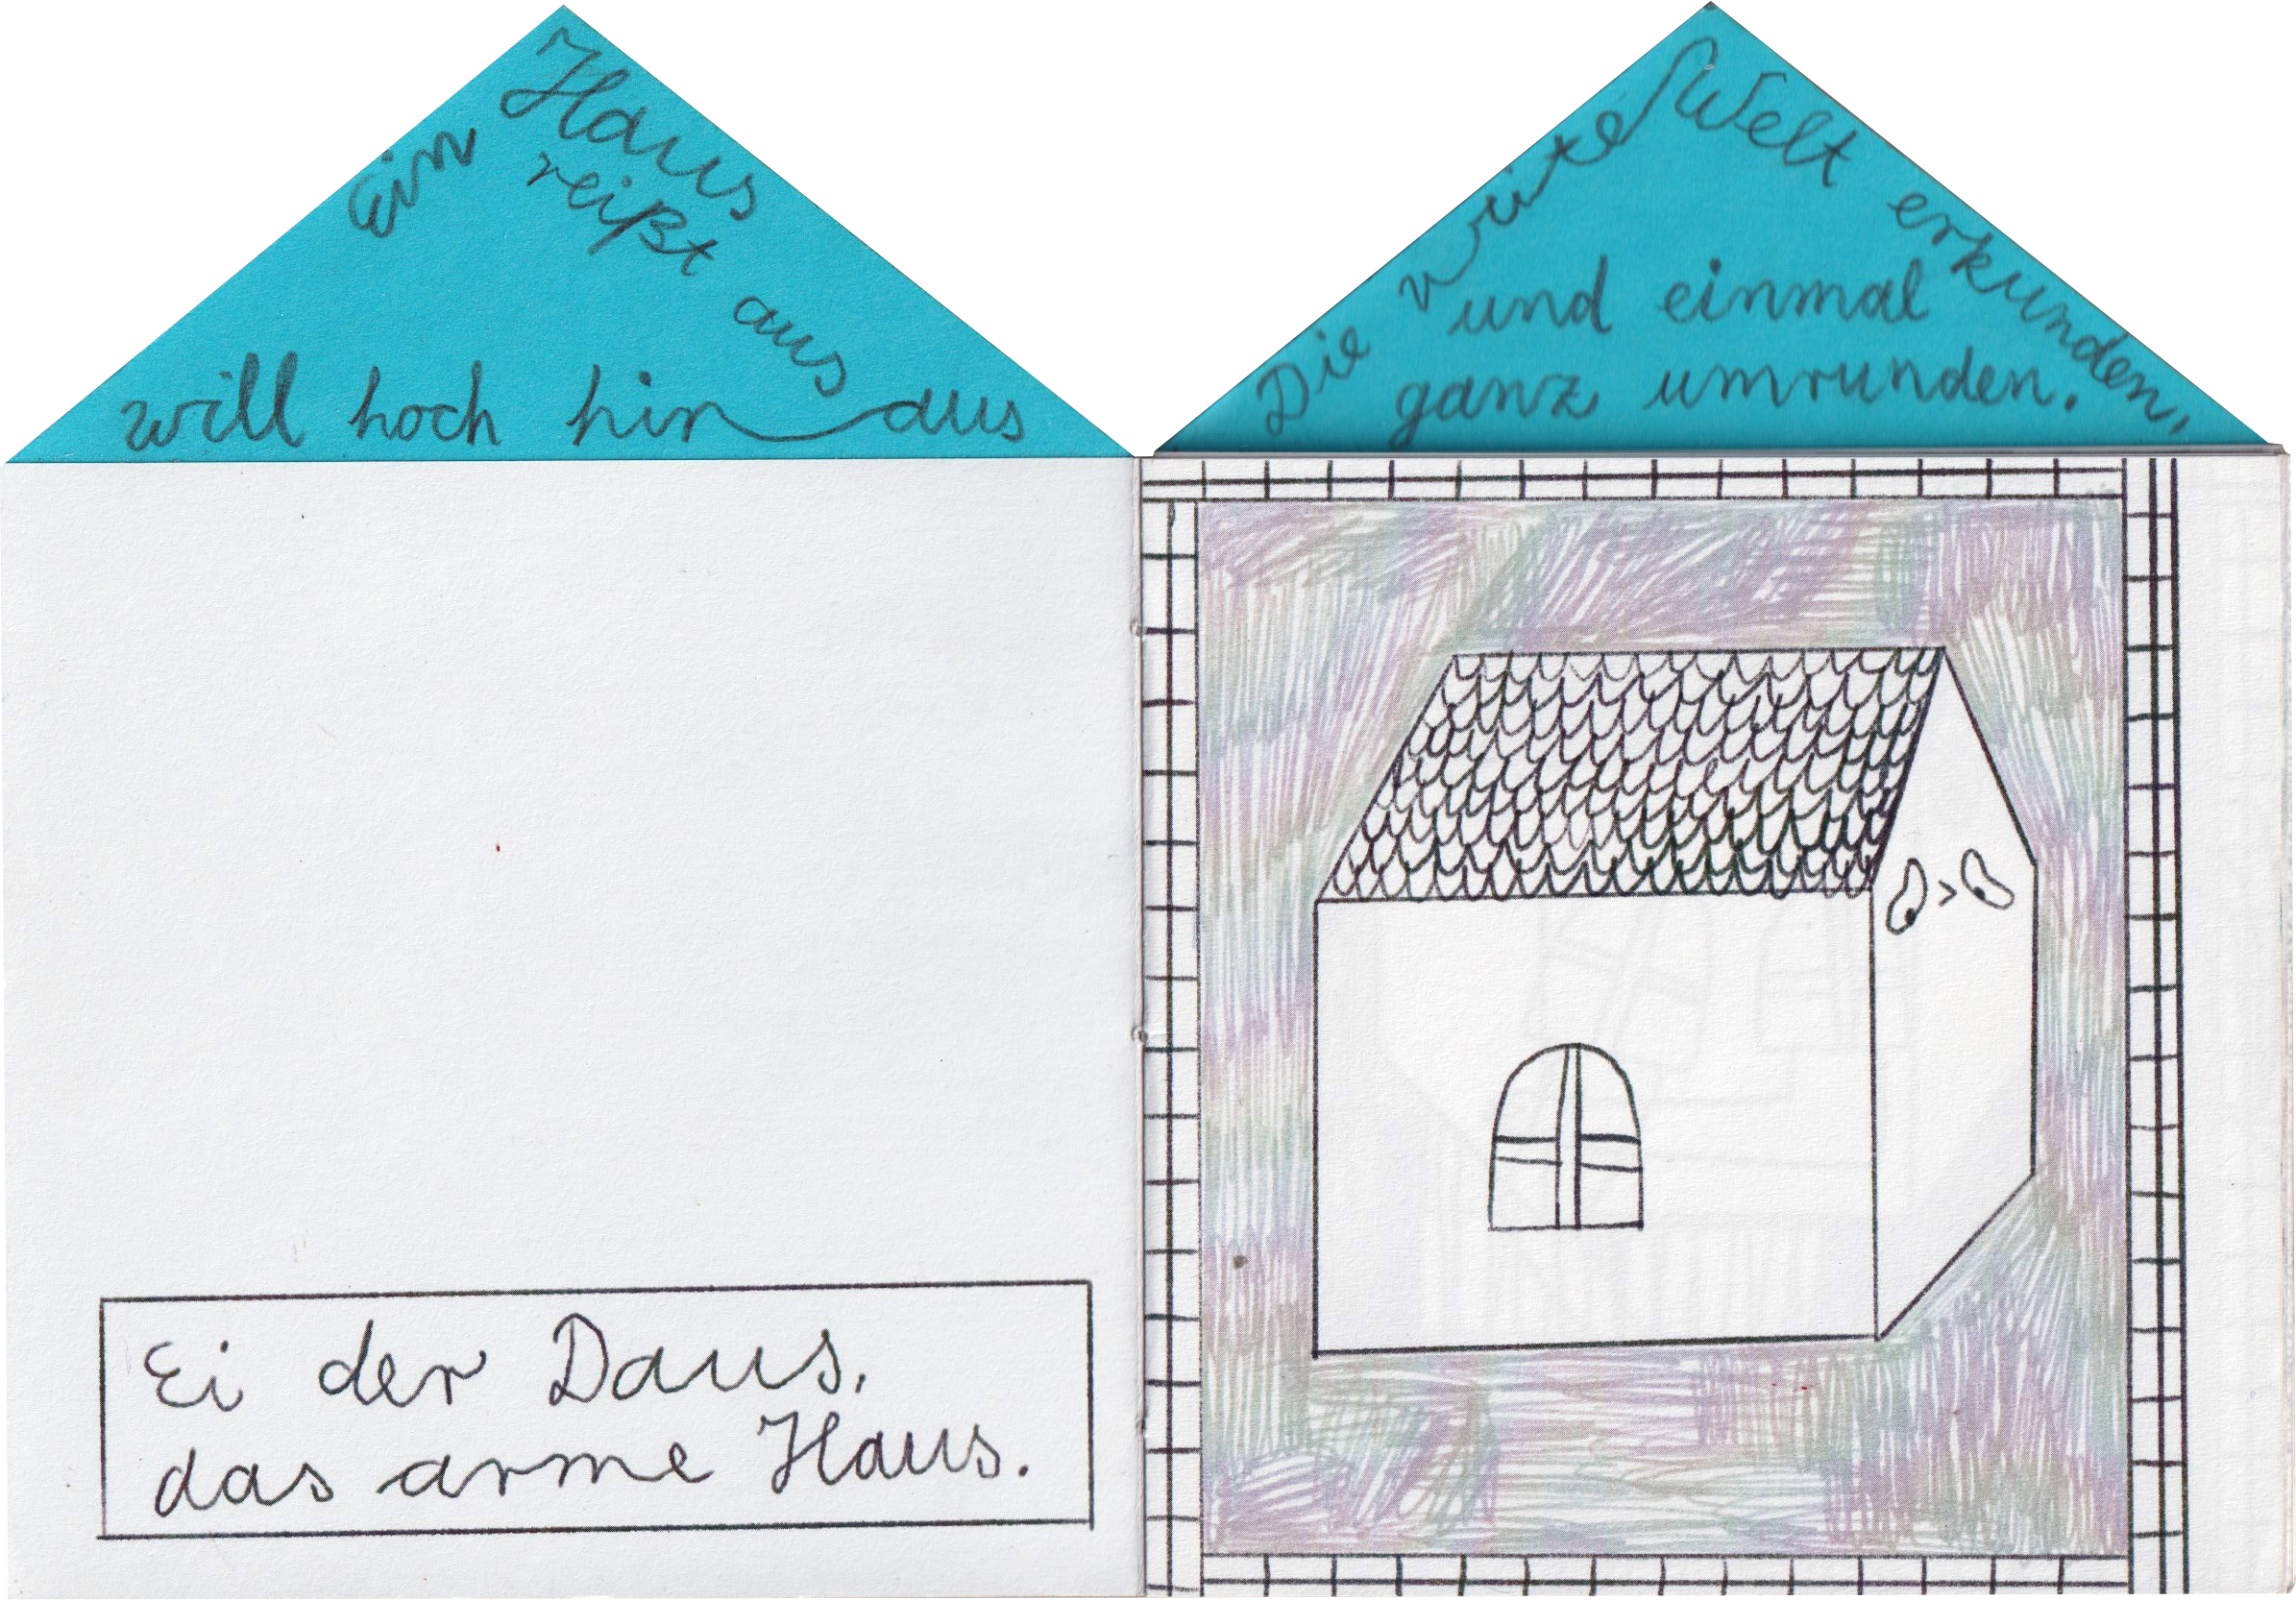 Ein Haus
reißt aus
will hoch hinaus
Die weite Welt erkunden,
und einmal
ganz umrunden.
Ei der Daus,
das arme Haus.